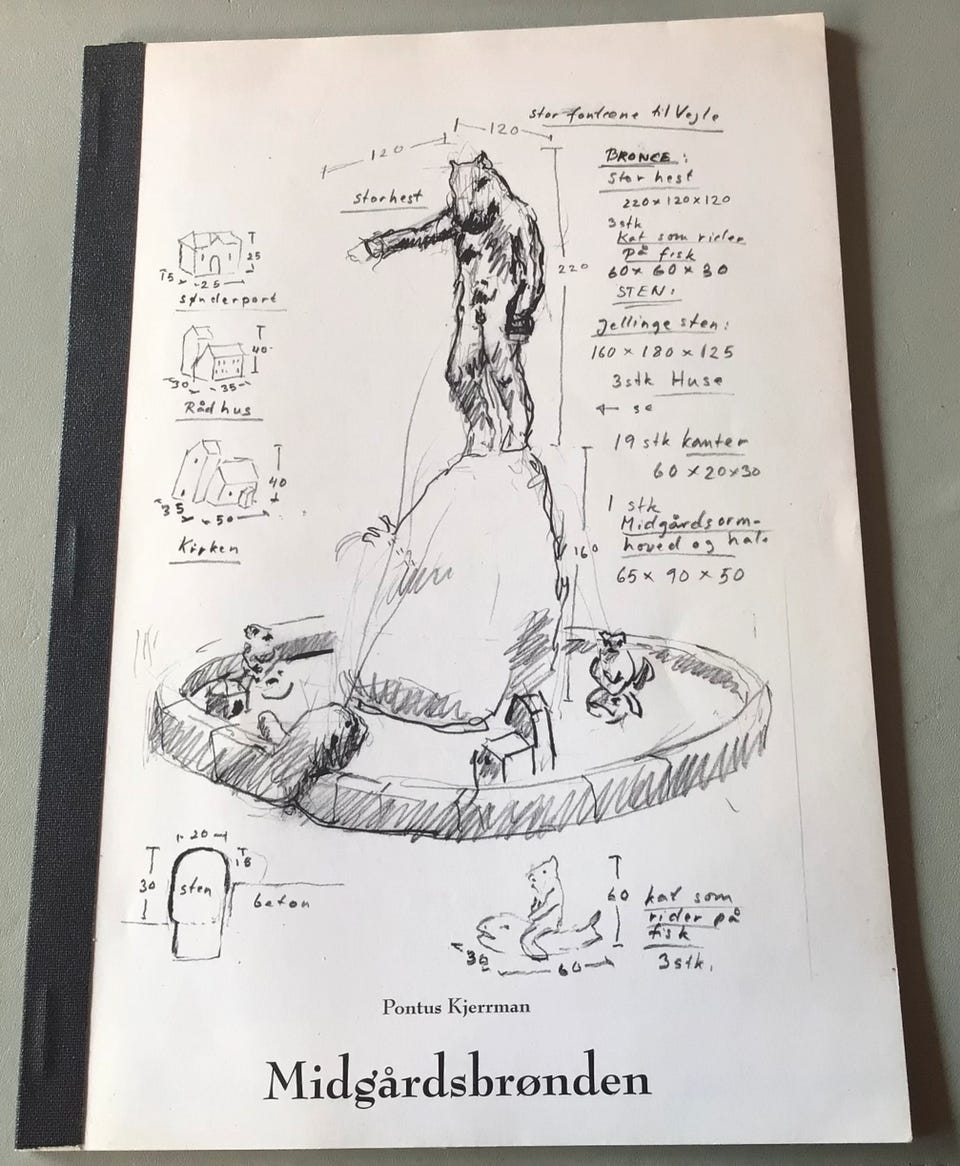 stor fontæne til Vejle
120
120
storhest
220
160
BRONCE:
Stor hest
220×120×120
3stk
Kat som rider
på fisk
60×60×30
STEN:
Jellinge sten:
160×180×125
3stk Huse
← se
19 stk kanter
60×20×30
1 stk
Midgårdsorm-
hoved og hale
65×90×50
25
15
25
Sønderport
40
30
35
Rådhus
40
35
50
Kirken
20
15
30
sten
beton
60
30
60
kat som
rider på
fisk
3stk.
Pontus Kjerrman
Midgårdsbrønden